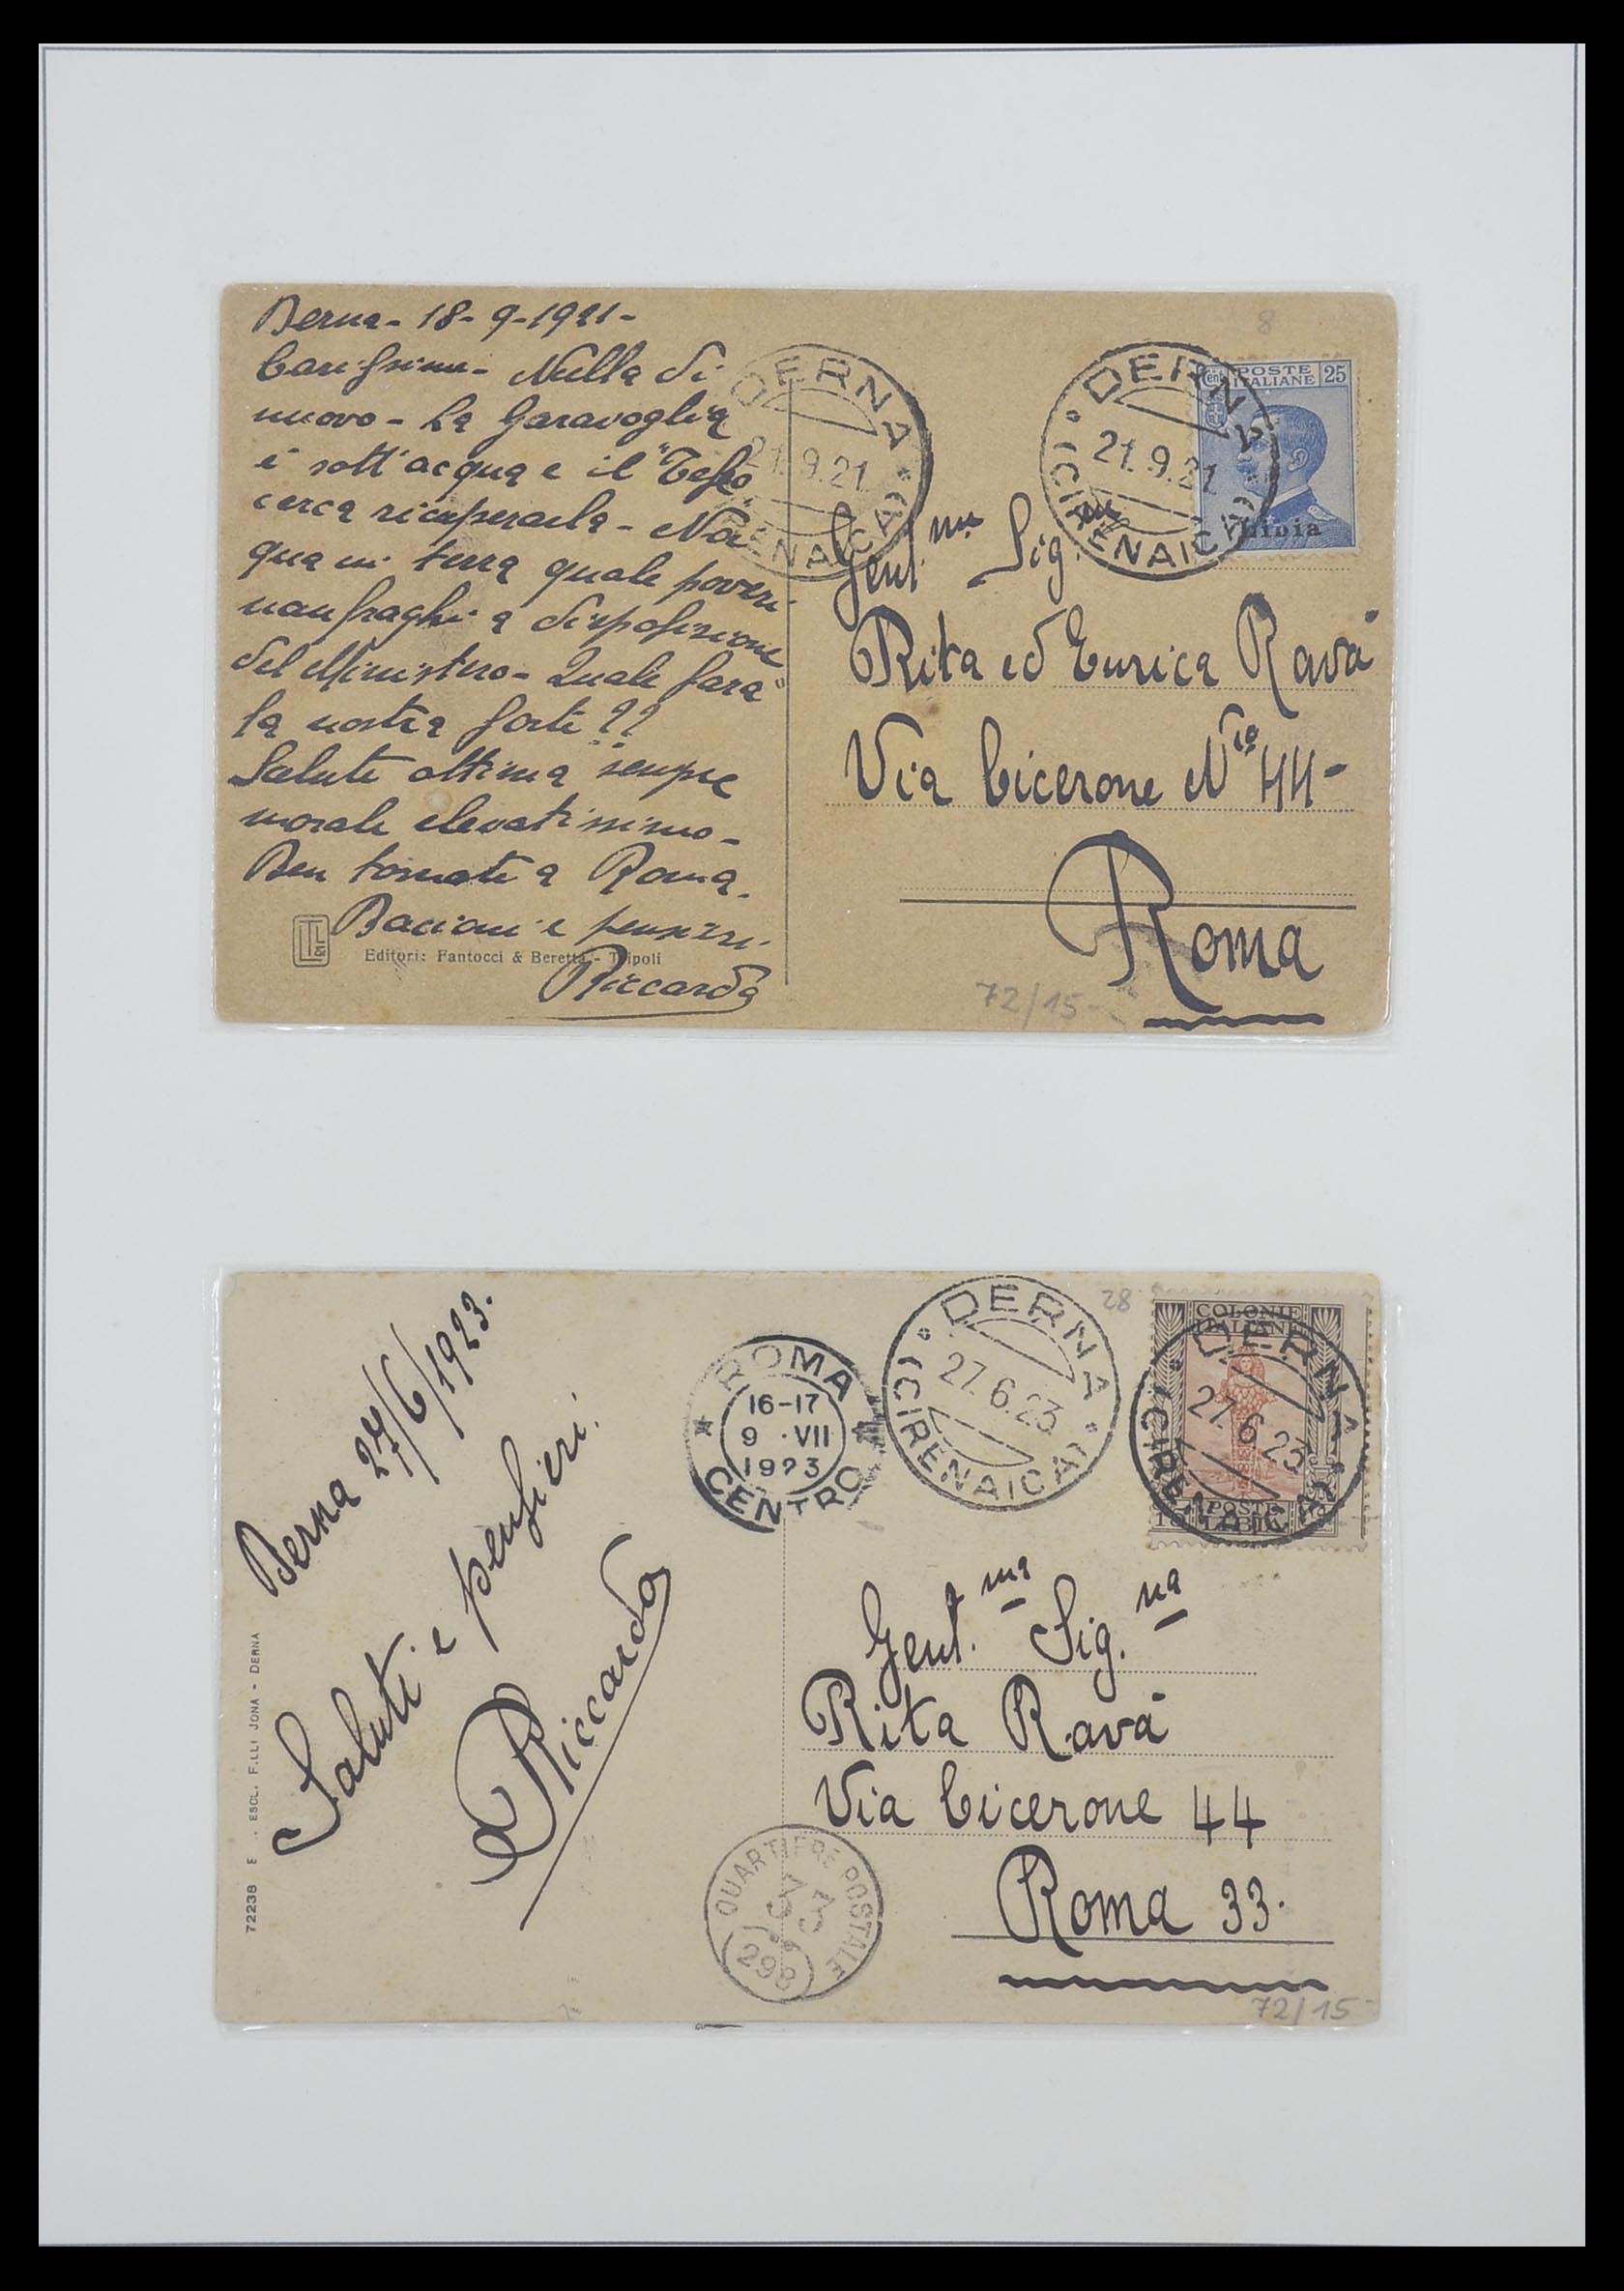 Derna - 18 - 9 - 1921 -
Carissime - Nulla di
nuovo - La Garavoglia
è sott'acqua e il "Teseo"
cerca ricuperarla - Noi
qua in terra quale poveri
naufraghi a disposizione
del Ministero - Quale sarà
la nostra sorte ??
Salute ottima sempre
morale elevatissimo -
Ben tornate a Roma.
Bacioni e pensieri.
Riccardo
Editori: Fantocci & Beretta - Tripoli
DERNA
21.9.21
(CIRENAICA)
DERNA
21.9.21
(CIRENAICA)
8
Cent POSTE ITALIANE 25
Libia
Gent. me Sig. ne
Rita ed Enrica Ravà
Via Cicerone N.ro 44 -
Roma
72/15-
Derna 27/6/1923.
Saluti e pensieri.
Riccardo
72238 E . ESCL. F.LLI JONA - DERNA
ROMA
16-17
9 · VII
1923
CENTRO
DERNA
27.6.23
(CIRENAICA)
28
COLONIE
ITALIANE
POSTE
LIBIA
DERNA
27.6.23
(CIRENAICA)
Gent. ma Sig. na
Rita Ravà
Via Cicerone 44
Roma 33.
QUARTIERE POSTALE
33
298
72/15-